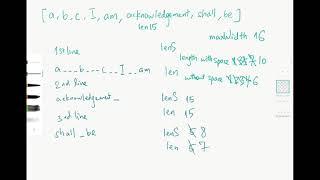 [a, b, c, I, am, acknowledgement, shall, be]
len15
maxWidth 16
1st line
lenS
length with space 10
a___b___c__I__am
len
without space 6
2nd line
acknowledgement_
lenS 15
len 15
3rd line
shall_be
lenS 8
len 7